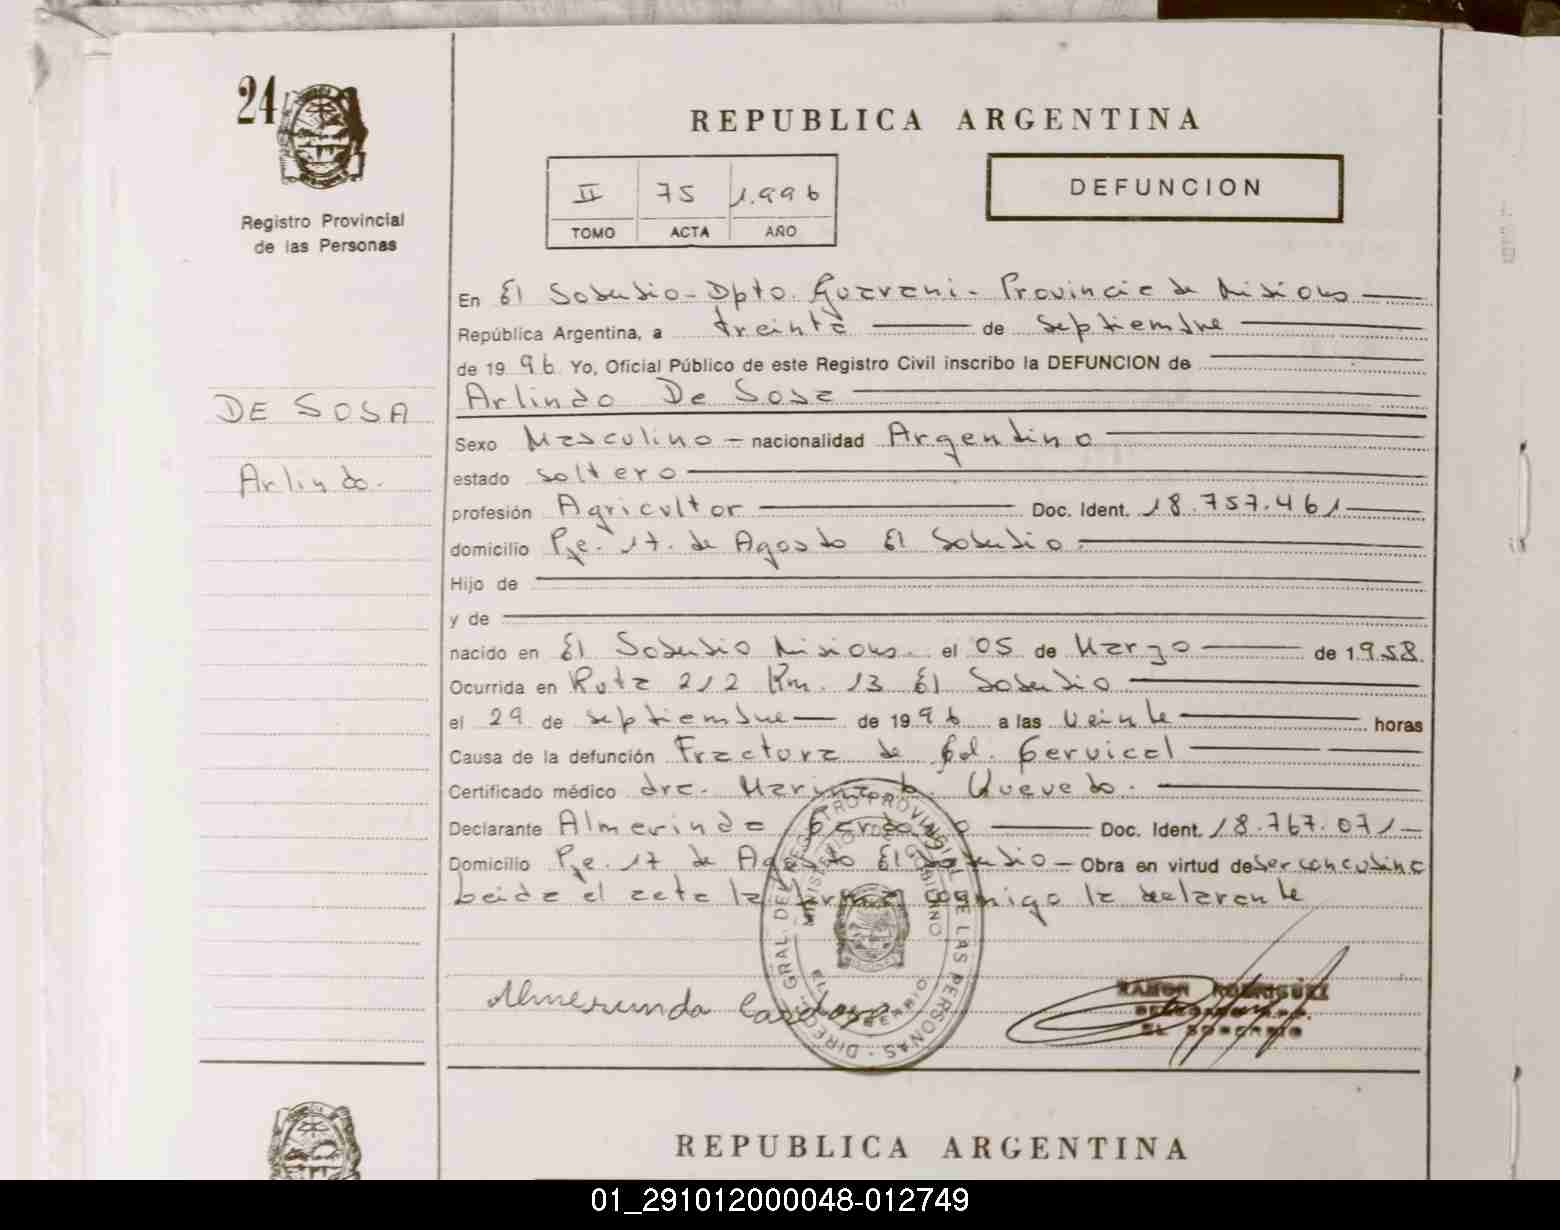 24
Registro Provincial
de las Personas
DE SOSA
Arlindo.
REPUBLICA ARGENTINA
II 75 1.996
TOMO ACTA AÑO
DEFUNCION
En El Soberbio - Dpto. Guarani - Provincia de Misiones
República Argentina, a treinta de septiembre
de 1996 Yo, Oficial Público de este Registro Civil inscribo la DEFUNCION de
Arlindo De Sosa
Sexo Masculino - nacionalidad Argentino
estado soltero
profesión Agricultor Doc. Ident. 18.757.461
domicilio Pje. 17. de Agosto El Soberbio.
Hijo de
y de
nacido en El Soberbio Misiones. el 05 de Marzo de 1.958.
Ocurrida en Ruta 212 Km. 13 El Soberbio
el 29 de septiembre de 1996 a las veinte horas
Causa de la defunción Fractura de Col. Cervical
Certificado médico dra. Marina Quevedo.
Declarante Almerinda Cardozo Doc. Ident. 18.767.071-
Domicilio Pje. 17 de Agosto El Soberbio - Obra en virtud de ser concubina
Leida el acta la firma conmigo la declarante
Almerinda Cardozo
DIREC. GRAL. DEL REGISTRO PROVINCIAL DE LAS PERSONAS
MINISTERIO DE GOBIERNO
EL SOBERBIO
RAMON RODRIGUEZ
EL SOBERBIO
REPUBLICA ARGENTINA
01_291012000048-012749